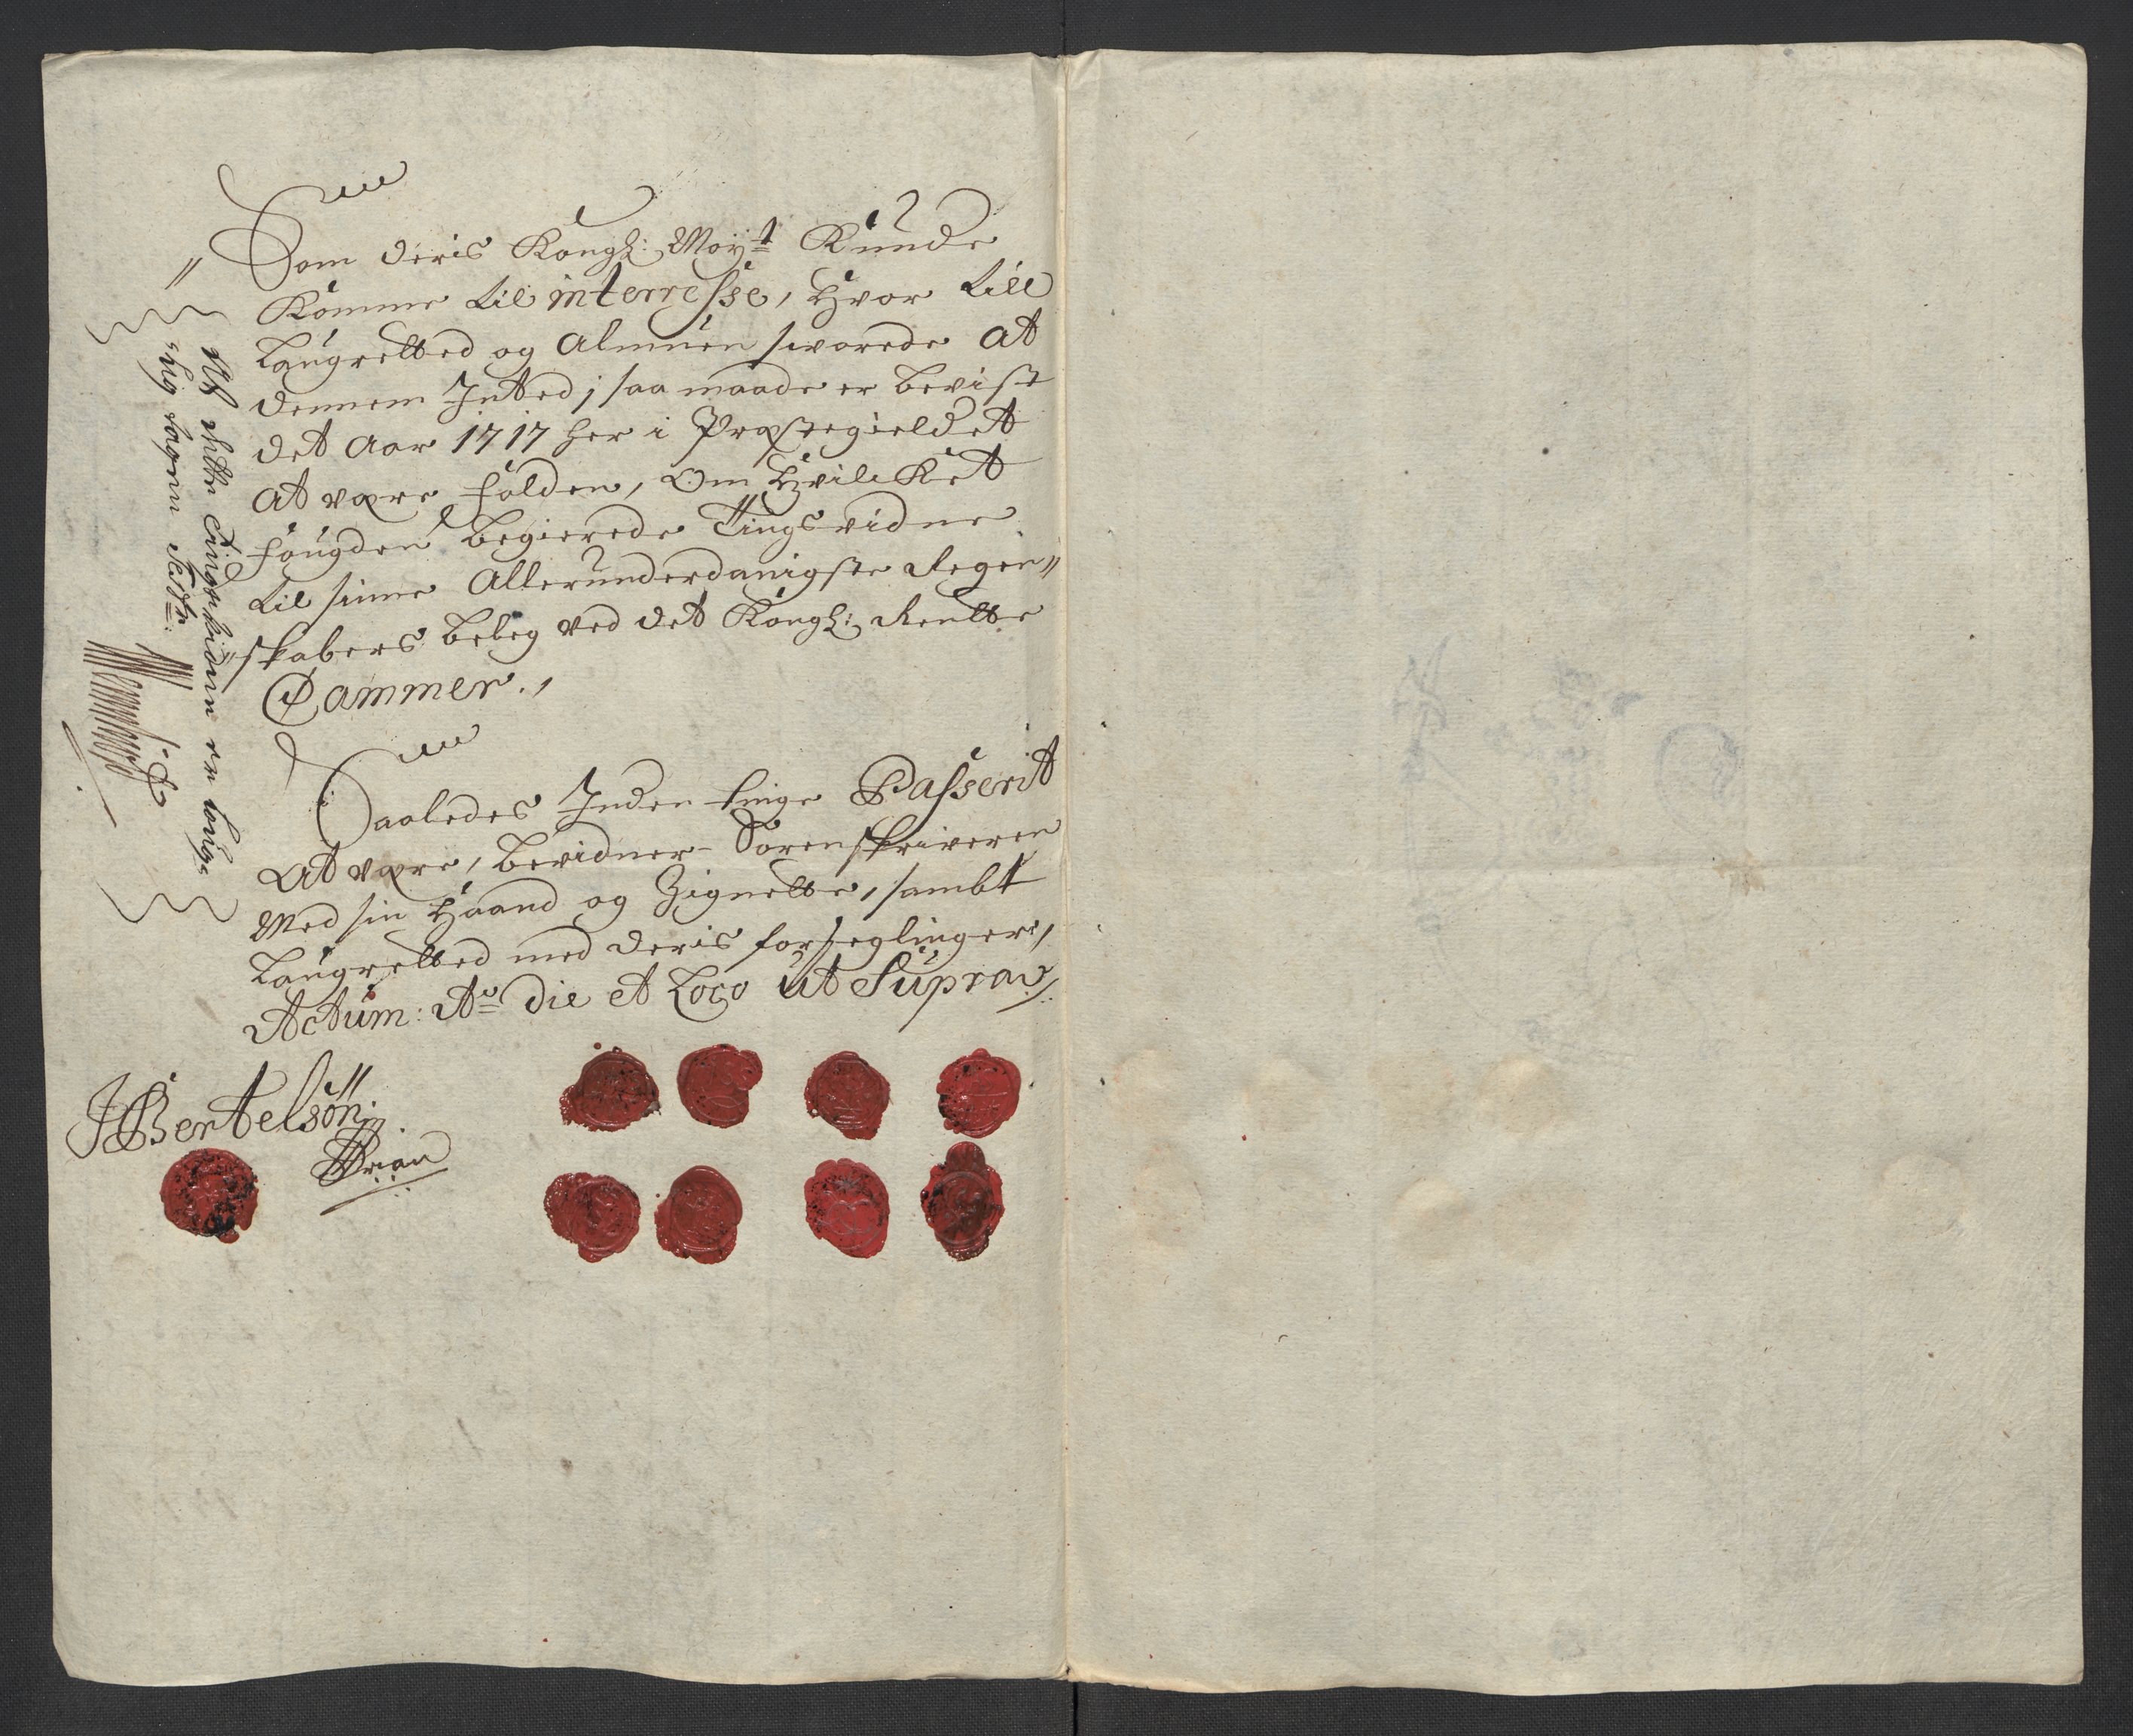 Som deris Kongl: Mayt Kunde
Komme til interresse, Hvor till
Laugretted og Almuen svarede At
dennem Intted j saa maade er bevist
det Aar 1717 her i Præstegieldet
At være falden, Om Hvilcket
fougden begierede Tingsvidne
til sinne Allerunderdanigste Regen„
skabers beleg ved det Kongl: Rentte
Cammer.,
Saaledes Inden tinge Passerit
At være, bevidner Sorenskriveren
Med sin Haand og Zignette, sambt
Laugretted med deris forseglinger,
Actum: Ao die et Loco ut Supra
JBertelsön
At dette Tings vidne er lovl:
lig tagen Test: